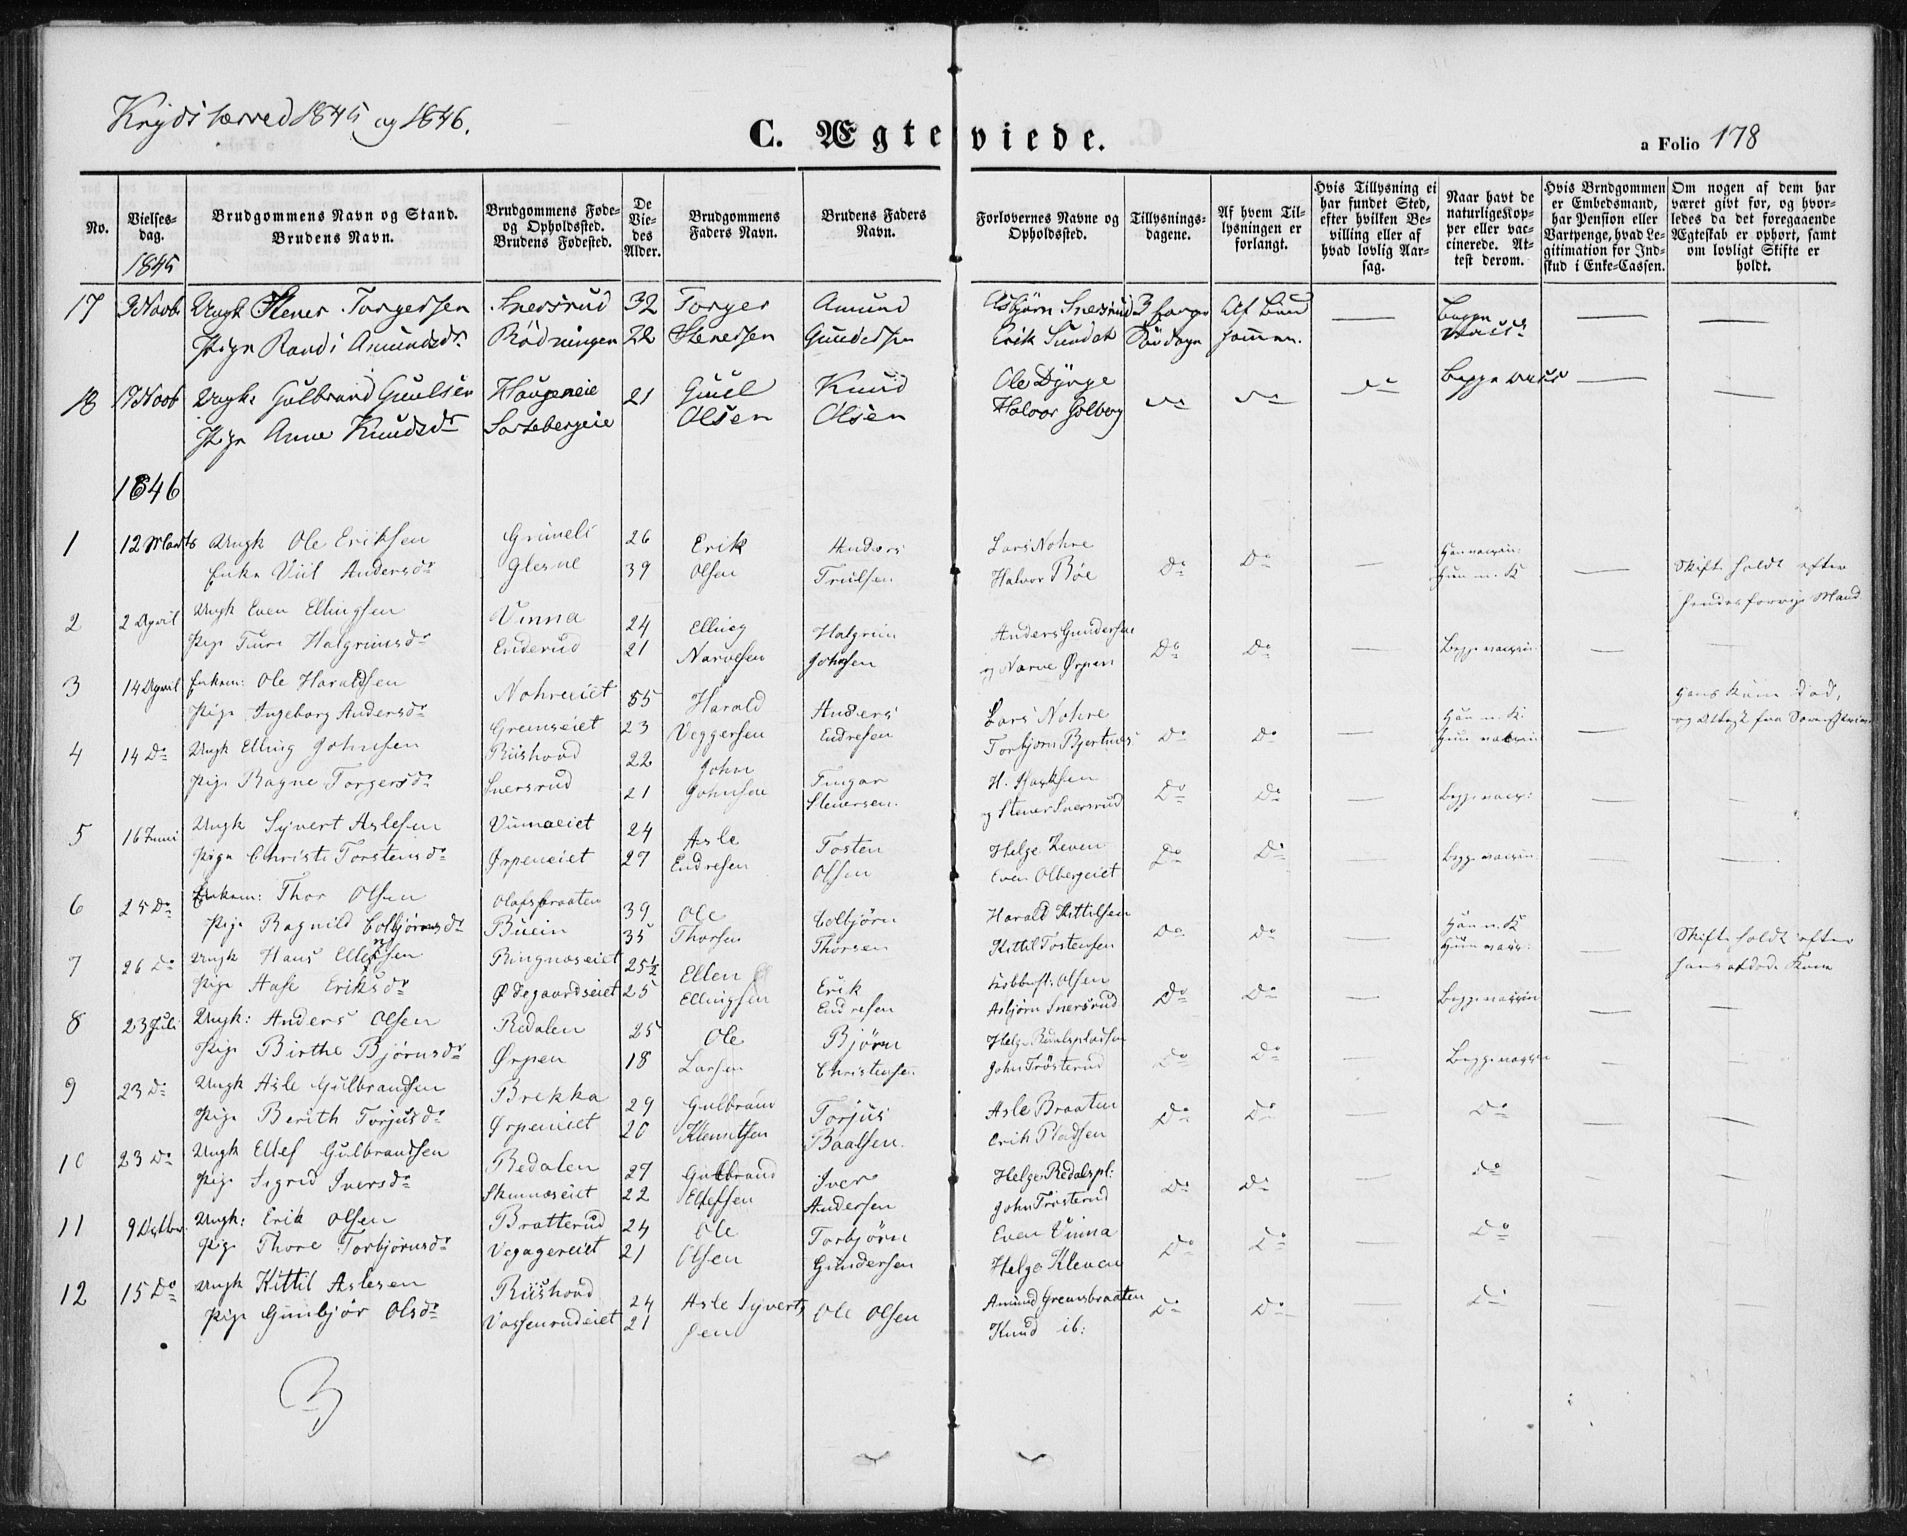 Krydshærred 1845 og 1846.
C. Ægteviede.
a Folio 178
No.
Vielses-
dag.
1845
Brudgommens Navn og Stand.
Brudens Navn.
Brudgommens Føde-
og Opholdssted.
Brudens Fødested.
De
Vie-
des
Alder.
Brudgommens
Faders Navn.
Brudens Faders
Navn.
Forlovernes Navne og
Opholdssted.
Tillysnings-
dagene.
Af hvem Til-
lysningen er
forlangt.
Hvis Tillysning ei
har fundet Sted,
efter hvilken Be-
villing eller af
hvad lovlig Aar-
sag.
Naar havt de
naturlige Kop-
per eller vac-
cinerede. At-
test derom.
Hvis Brudgommen
er Embedsmand,
har Pension eller
Vartpenge, hvad Le-
gitimation for Ind-
skud i Enke-Cassen.
Om nogen af dem har
været givt før, og hvor-
ledes da det foregaaende
Ægteskab er ophørt, samt
om lovligt Skifte er
holdt.
17 9 Novb. Ungk Stener Torgersen Snersrud 32 Torger Amund Asbjørn Snersrud 3 Af Brud
Pige Randi Amundsdr Rødningen 22 Stenersen Gundersen Erik Sundet Søndage gommen. Begge
18 17 Novb Ungk: Gulbrand Guulsen Haugeneie 21 Guul Knud Ole Dynge Do Do Do Begge vacc
Pige Anne Knudsdr Sortebergeie Olsen Olsen Halvor Golberg
1846
1 12 Marts Ungk Ole Eriksen Grimeli 26 Erik Anders Lars Nohre Do Do Han vaccin:
Enke Viil Andersdr Glesne 39 Olsen Trulsen Halvor Bøe Hun n. K Skifte holdt efter
hendes forrige Mand
2 2 April Ungk Even Ellingsen Vinna 24 Elling Halgrim Anders Gundersen
Pige Turi Halgrimsdr Enderud 21 Narvesen Johnsen og Narve Ørpen Do Do Begge vaccin:
3 14 April Enkem: Ole Haraldsen Nohreeiet 55 Harald Anders Lars Nohre Do Do Han n. K. Hans Kone død,
Pige Ingeborg Andersdr Gremseiet 23 Veggersen Endresen Torbjørn Bjertnæs Hun vaccin og Attest fra Sorenskriver
4 14 Do Ungk Elling Johnsen Riishovd 22 John Tingar H.
Pige Ragne Torgersdr Snersrud 21 Johnsen Stenersen. og Stener Snersrud Do Do Begge vacc:
5 16 Juni Ungk Syvert Aslesen Vinnaeiet 24 Asle Tosten Helge Do Do Begge vaccin:
Pige Christi Torstensdr Ørpeneiet 27 Endresen Olsen Even Olbergeiet
6 25 Do Enkem: Thor Olsen Olafsbraaten 39 Ole Colbjørn Harald Kittilsen Do Do Han n. K
Pige Ragnild Colbjørnsdr Buein 35 Thorsen Thorsen Kittil Tostensen Hun vacc: Skifte holdt efter
hans afdøde Kone
7 26 Do Ungk Hans Ellensen Ringnæseiet 25½ Ellen Erik Olsen
Pige Aase Eriksdr Ødegaardseiet 25 Ellingsen Endresen Asbjørn Snersrud Do Do Begge vaccin
8 23 Juli Ungk: Anders Olsen Redalen 25 Ole Bjørn Helge Redalspladsen
Pige Birthe Bjørnsdr Ørpen 18 Larsen Christensen John Trøsterud Do Do Begge vaccin
9 23 Do Ungk Asle Gulbrandsen Brekka 29 Gulbrand Torjus Asle Braaten Do Do Do
Pige Berith Torjusdr Ørpeneiet 20 Klemitsen Baalsen. Erik Pladsen
10 23 Do Ungk Ellef Gulbrandsen Redalen 29 Gulbrand Iver Helge Redalspl: Do Do Do
Pige Sigrid Iversdr Skinnæseiet 22 Ellefsen Andersen John Trøsterud
11 9 Ungk: Erik Olsen Bratterud 24 Ole Torbjørn Even Vinna Do Do Do
Pige Thore Torbjørnsdr Vegagereiet 21 Olsen Gundersen Helge Kleven
12 15 Do Ungk Kittil Aslesen Riishovd 24 Asle Syvert- Ole Olsen Amund Gremsbraaten Do Do Do
Pige Gunbjør Olsdr Vassenrudeiet 21 sen Knud ib: